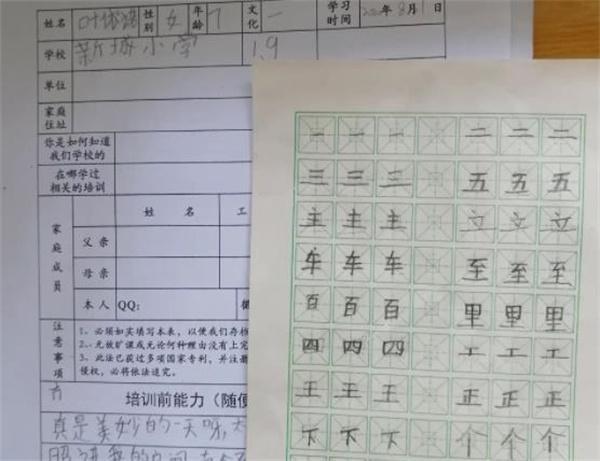 姓名 叶 性别 女 年龄 7 文化 一 学习时间 年8月1日
学校 新城小学 1.9
单位
家庭住址
你是如何知道我们学校的
在哪学过相关的培训
家庭成员 姓名 工
父亲
母亲
本人 QQ:
注意事项
1、必须如实填写本表，以便我们存档
2、无故旷课或无论何种理由没有上完
3、此法已获过多项国家专利，并注册
侵权，必将依法追究。
培训前能力（随便
真是美妙的一天呀，
一 一 一 二 二 二
三 三 三 五 五 五
主 主 主 立 立 立
车 车 车 至 至 至
百 百 百 里 里 里
四 四 四 工 工 工
王 王 王 正 正 正
下 下 下 个 个 个